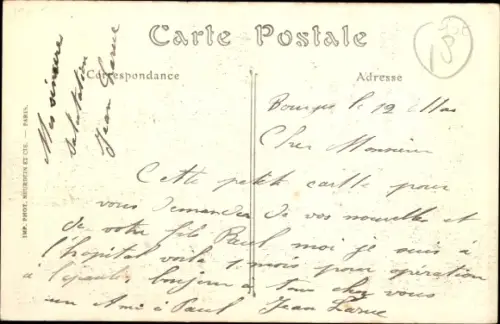 Carte Postale
Correspondance
Adresse
Bourges le 12 Mai
Cher Monsieur
Cette petite carte pour
vous demander de vos nouvelles et
de votre fils Paul moi je suis à
l'hôpital voila 1 mois pour opération
à l'épaule bonjour à tous chez vous
un Ami à Paul Jean Larue
Mes sincère
salutation
Jean Larue
IMP. PHOT. NEURDEIN ET CIE. — PARIS.